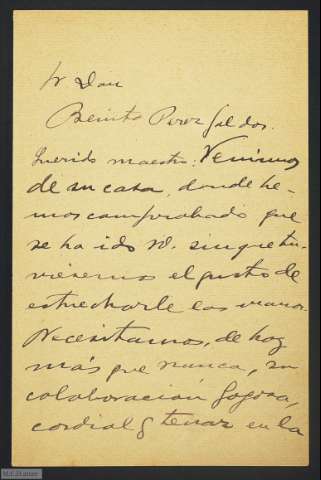 Sr Don
Benito Perez Galdos.
Querido maestro: Venimos
de su casa, donde he-
mos comprobado que
se ha ido V. sin que tu-
viésemos el gusto de
estrecharle las manos.
Necesitamos, de hoy
más que nunca, su
colaboración fogosa,
cordial y tenaz en la